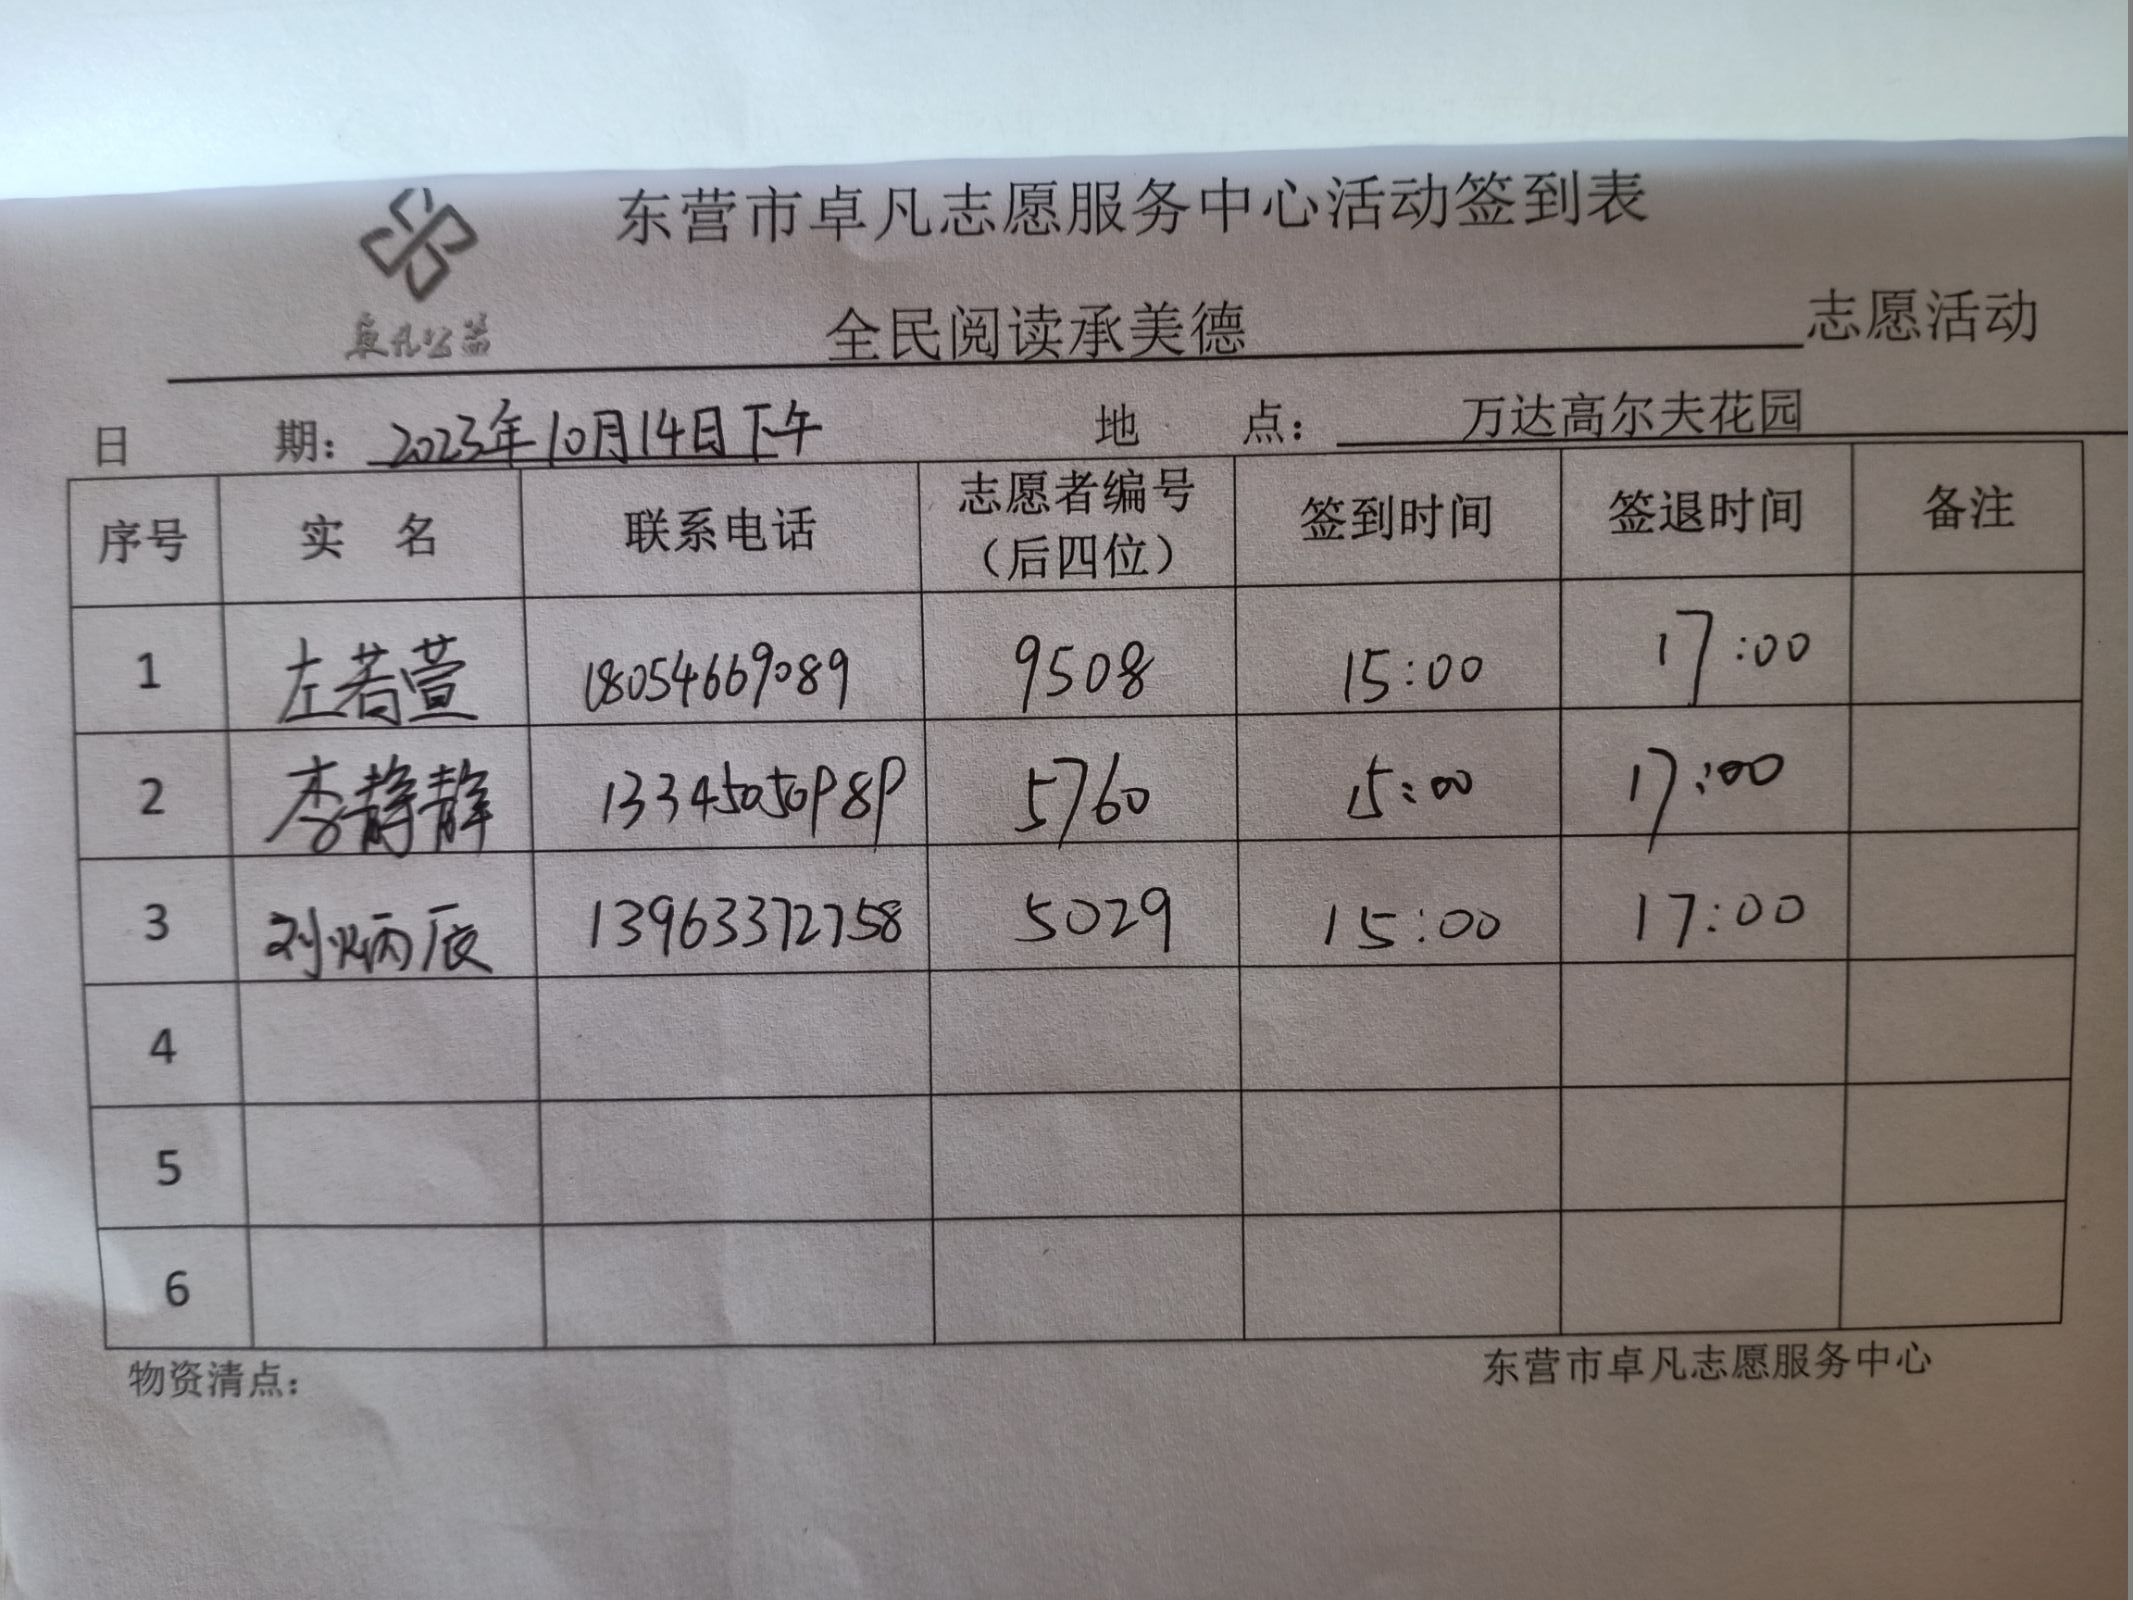 东营市卓凡志愿服务中心活动签到表
卓凡公益
全民阅读承美德 志愿活动
日 期: 2023年10月14日下午 地 点: 万达高尔夫花园
序号 实 名 联系电话 志愿者编号 (后四位) 签到时间 签退时间 备注
1 左若萱 18054669089 9508 15:00 17:00
2 李静静 13345050989 5760 15:00 17:00
3 刘炳辰 13963372758 5029 15:00 17:00
4
5
6
物资清点: 东营市卓凡志愿服务中心